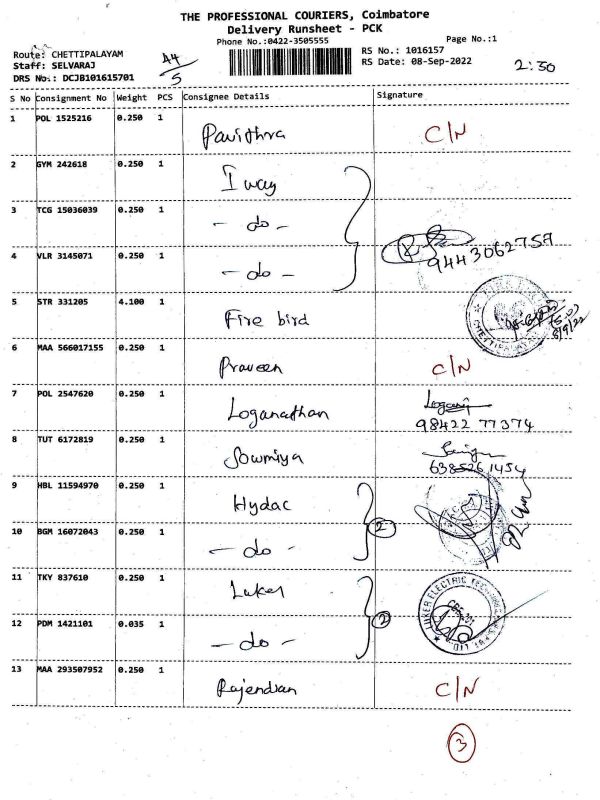 THE PROFESSIONAL COURIERS, Coimbatore
Delivery Runsheet - PCK
Phone No.:0422-3505555
Page No.:1
Route: CHETTIPALAYAM
Staff: SELVARAJ
DRS No.: DCJB101615701
A4/5
RS No.: 1016157
RS Date: 08-Sep-2022
2:50
S No Consignment No Weight PCS Consignee Details Signature
1 POL 1525216 0.250 1 Pavithra C/N
2 GYM 242618 0.250 1 I way
3 TCG 15036039 0.250 1 - do -
4 VLR 3145071 0.250 1 - do - 9443062757
5 STR 331205 4.100 1 Fire bird
6 MAA 566017155 0.250 1 Praveen C/N
7 POL 2547620 0.250 1 Loganathan
98422 77374
8 TUT 6172819 0.250 1 Sowmiya
6385261454
9 HBL 11594970 0.250 1 Hydac
10 BGM 16072043 0.250 1 - do - 2
11 TKY 837610 0.250 1 Luker LUKER ELECTRIC
12 PDM 1421101 0.035 1 - do - 2
13 MAA 293507952 0.250 1 Rajendran C/N
3